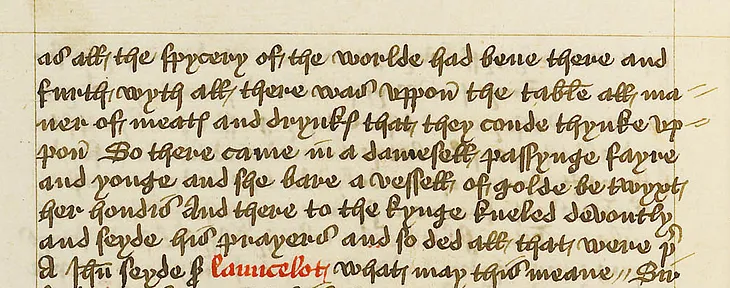 as all the spycery of the worlde had bene there and
furth wyth all there was uppon the table all ma
ner of meates and drynkes that they coude thynke up
pon So there came in a damesell passynge fayre
and yonge and she bare a vessell of golde betwyxt
her hondis And there to the kynge kneled devoutly
and seyde his prayers and so ded all that were þr
A Jhu seyde sr launcelot what may this meane // Sir